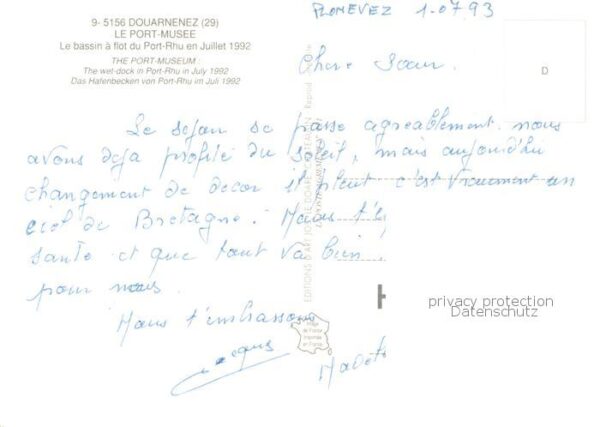 9- 5156 DOUARNENEZ (29)
LE PORT-MUSEE
Le bassin à flot du Port-Rhu en Juillet 1992
THE PORT-MUSEUM :
The wet-dock in Port-Rhu in July 1992
Das Hafenbecken von Port-Rhu im Juli 1992
PLONEVEZ 1-07.93
D
Chere Sœur.
Le sejour se passe agreablement. nous
avons deja profité du soleil, mais aujourd'hui
changement de decor il pleut c'est vraiment un
ciel de Bretagne.
santé et que tout va bien
pour nous.
Nous t'embrassons
Jacques
EDITIONS D'ART JOS LE DOARE
Image
de France
imprimée
en France
privacy protection
Datenschutz